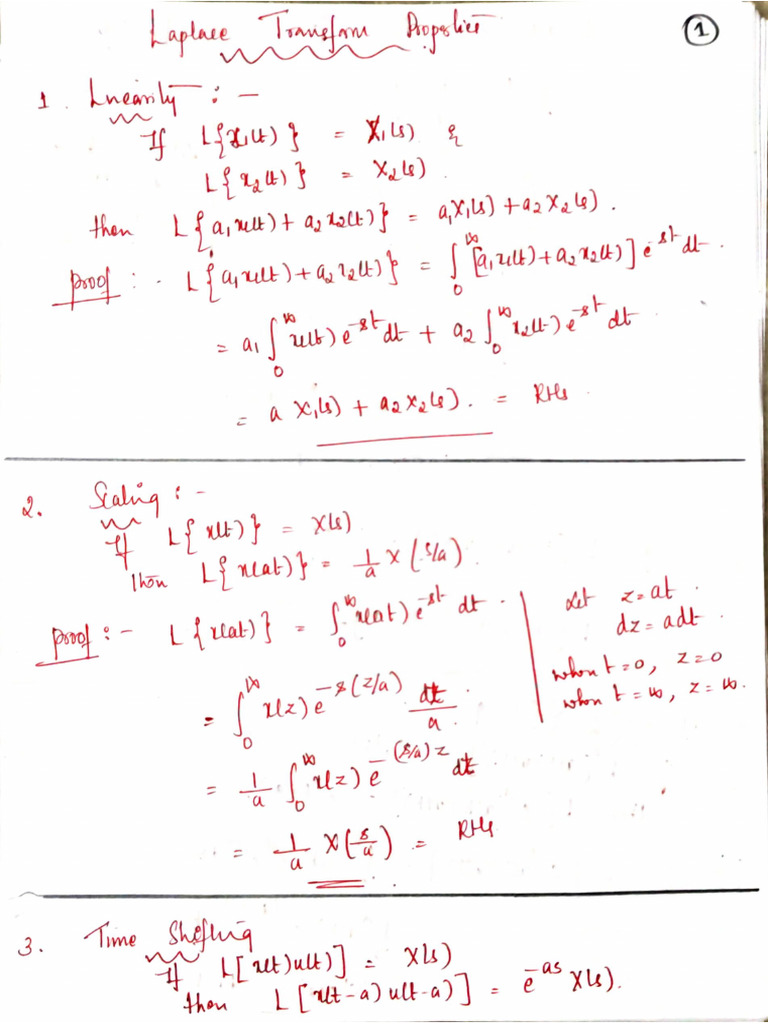 Laplace Transform Properties
①
1. Linearity :-
If L{x₁(t)} = X₁(s) &
L{x₂(t)} = X₂(s).
then L{a₁x₁(t) + a₂x₂(t)} = a₁X₁(s) + a₂X₂(s).
Proof :- L{a₁x₁(t) + a₂x₂(t)} = ∫₀^∞ [a₁x₁(t) + a₂x₂(t)] e^-st dt.
= a₁ ∫₀^∞ x₁(t) e^-st dt + a₂ ∫₀^∞ x₂(t) e^-st dt
= a X₁(s) + a₂X₂(s). = RHS.
2. Scaling :-
If L{x(t)} = X(s)
Then L{x(at)} = 1/a X(s/a).
Proof :- L{x(at)} = ∫₀^∞ x(at) e^-st dt.
= ∫₀^∞ x(z) e^-s(z/a) dz/a.
= 1/a ∫₀^∞ x(z) e^-(s/a)z dz
= 1/a X(s/a) = RHS
Let z = at.
dz = adt.
when t=0, z=0
when t=∞, z=∞.
3. Time Shifting
If L[x(t)u(t)] = X(s)
then L[x(t-a)u(t-a)] = e^-as X(s).